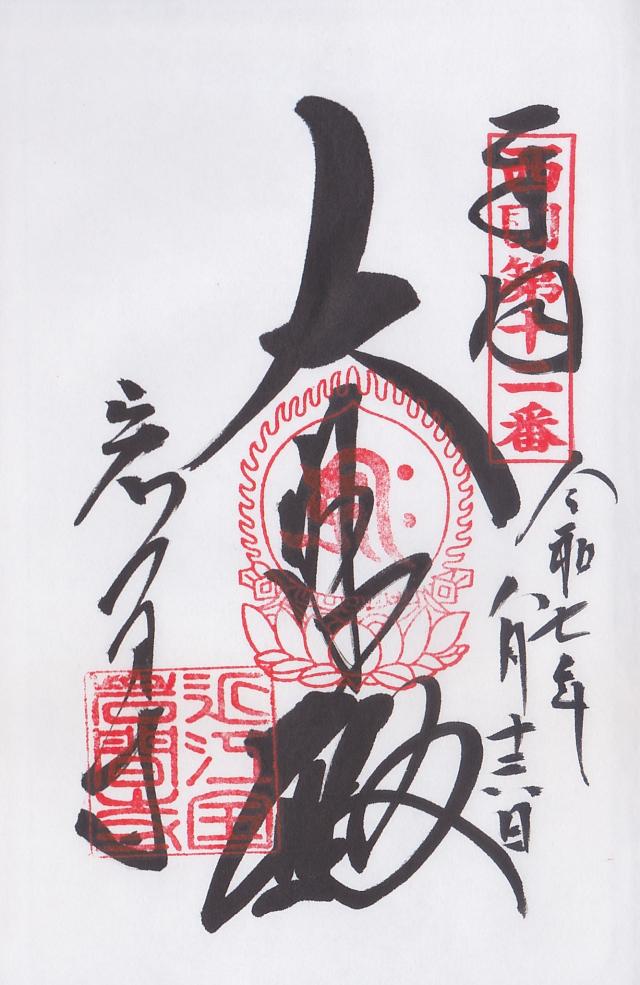 奉拝
西国第十二番
令和七年
八月十六日
大悲殿
岩間寺
近江国
岩間寺